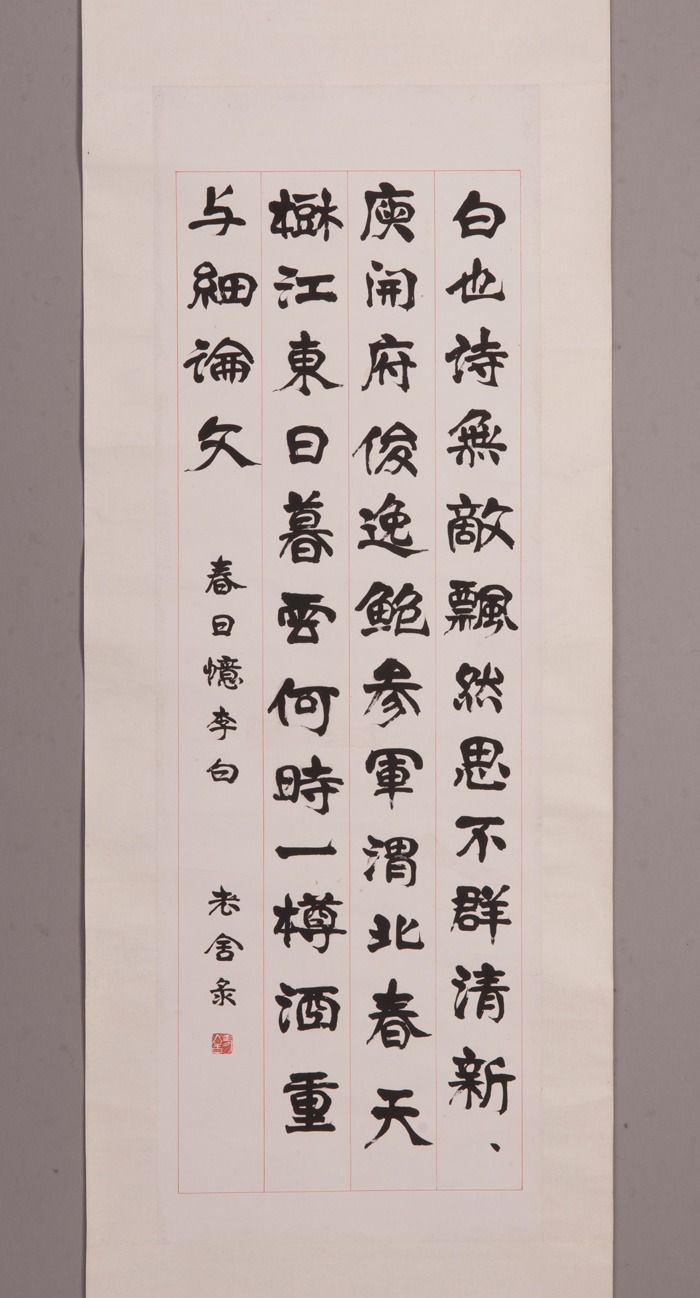 白也詩無敵飄然思不群清新、
庾開府俊逸鮑参軍渭北春天
樹江東日暮雲何時一樽酒重
与細論文 春日憶李白 老舍彔